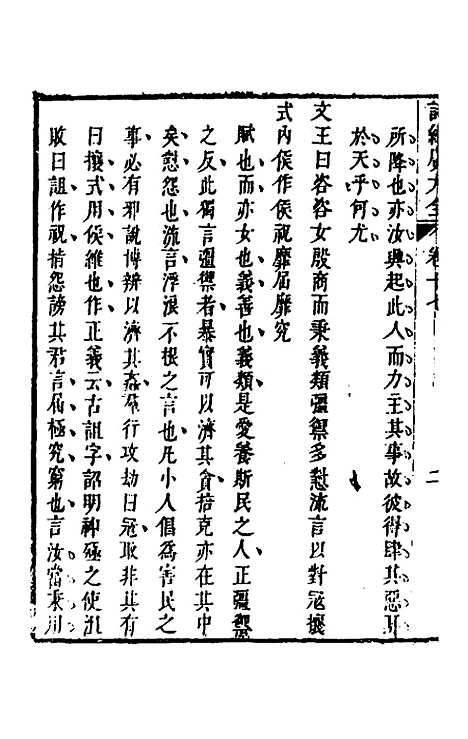 詩經廣大全 卷十七 二
所降也亦汝興起此人而力主其事故彼得肆其惡耳
於天乎何尤
文王曰咨咨女殷商而秉義類彊禦多懟流言以對冦攘
式內侯作侯祝靡屆靡究
賦也而亦女也義善也義類是愛養斯民之人正彊禦
之反此獨言彊禦者暴實可以濟其貪掊克亦在其中
矣懟怨也流言浮浪不根之言也凡小人倡為害民之
事必有邪說博辨以濟其姦羣行攻劫曰冦取非其有
曰攘式用侯維也作正義云古詛字詔明神殛之使沮
敗曰詛作祝情怨謗其君言屆極究窮也言汝當秉用